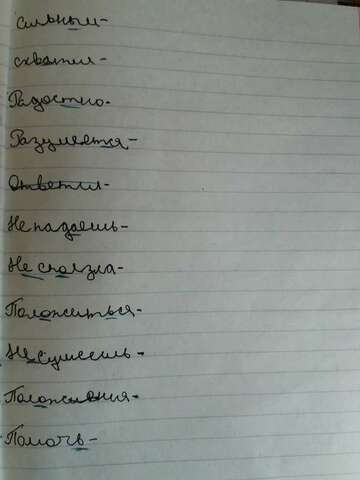 сильным-
схватил-
Радостно.
Разумеется-
Ответил-
Не падаешь-
Не сползла-
Положиться-
Положения-
Помочь-